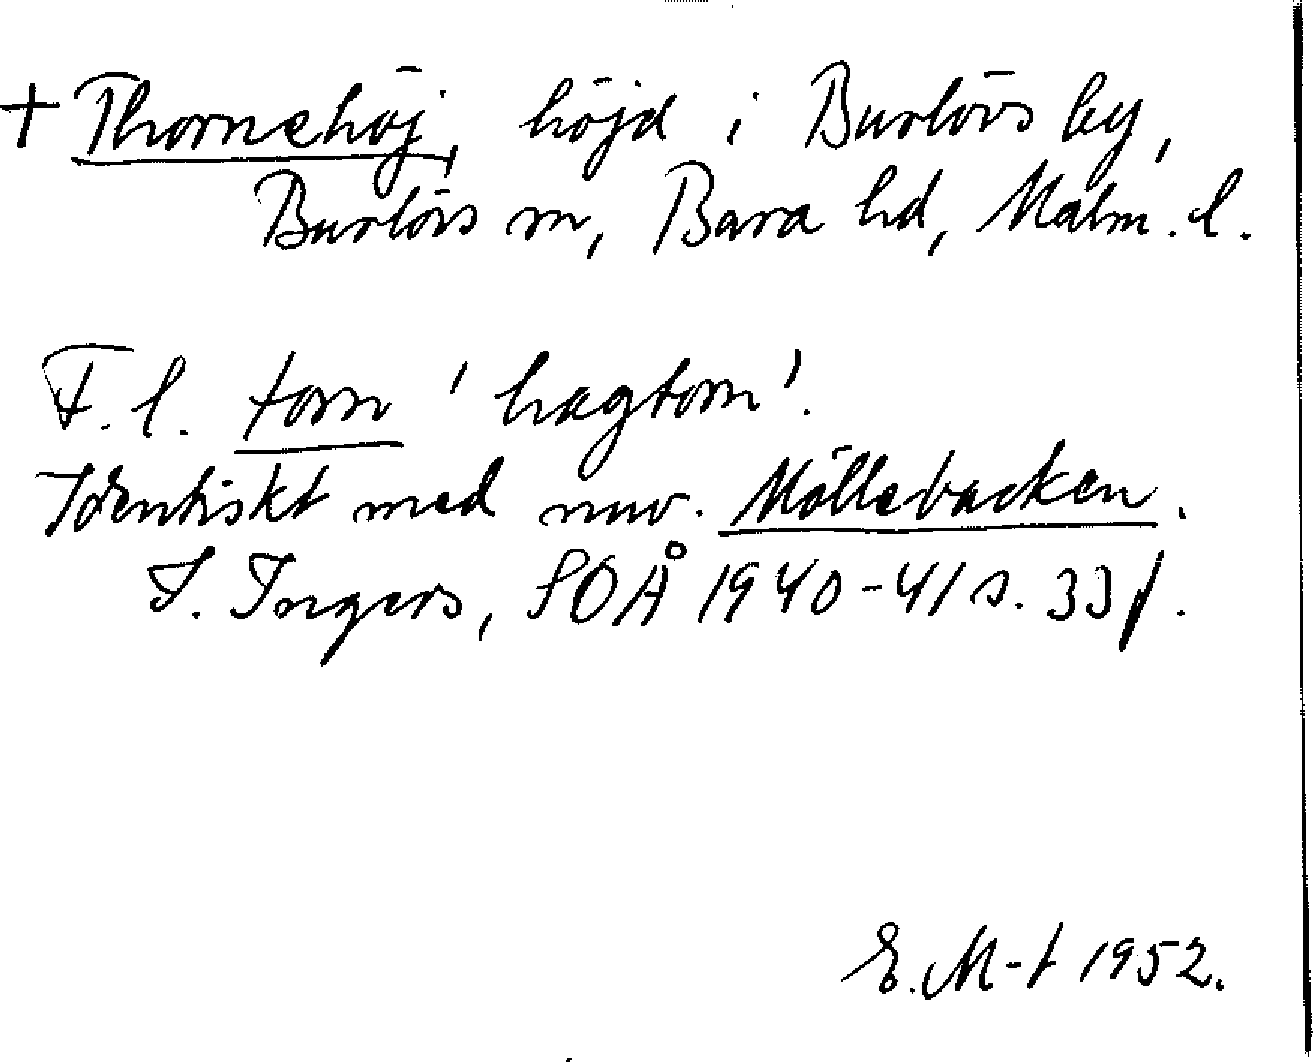 + Thornehöj, höjd i Burlövs by,
Burlövs sn, Bara hd, Malm. l.
F. l. torn 'hagtorn'.
Identiskt med nuv. Möllebacken.
I. Ingers, SOÅ 1940-41 s. 33 f.
E. M-t 1952.